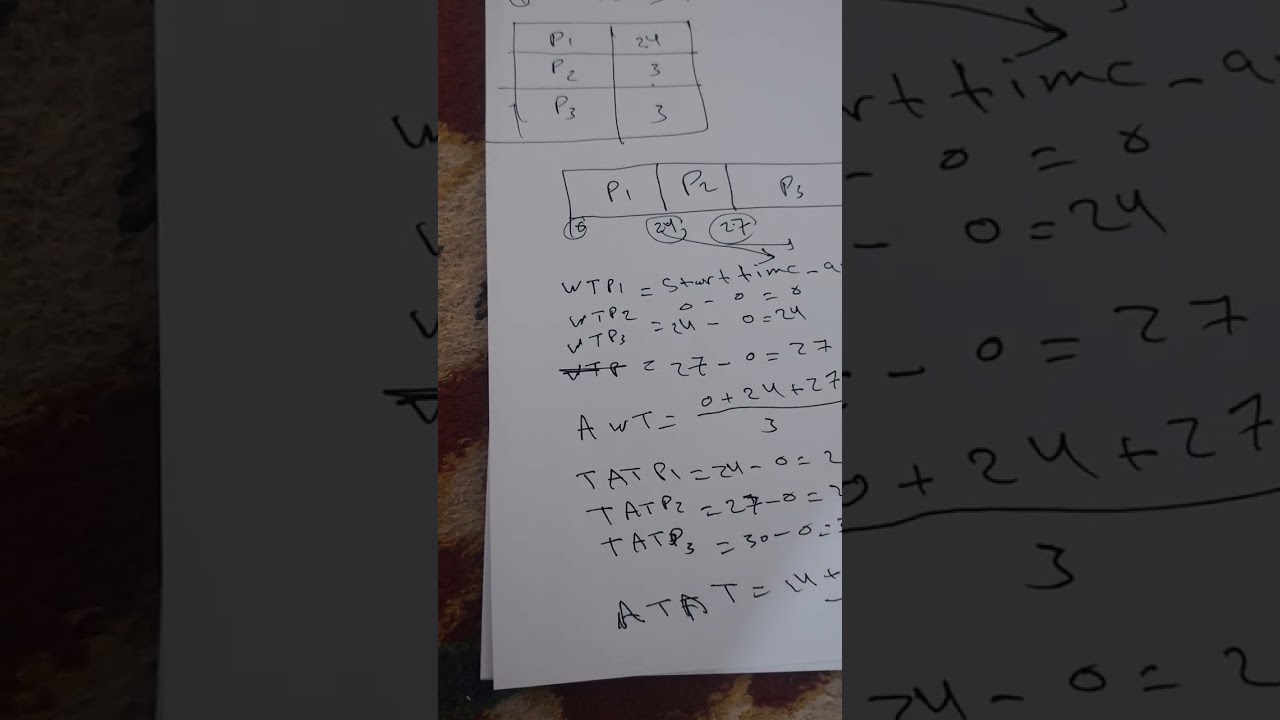 P1 24
P2 3
P3 3
P1 P2 P3
0 24 27
WTP1 = Start time - a
WTP2 0 - 0 = 0
WTP3 = 24 - 0 = 24
WTP = 27 - 0 = 27
AWT = 0 + 24 + 27
3
TATP1 = 24 - 0 = 2
TATP2 = 27 - 0 = 2
TATP3 = 30 - 0 = 3
ATAT = 24 +